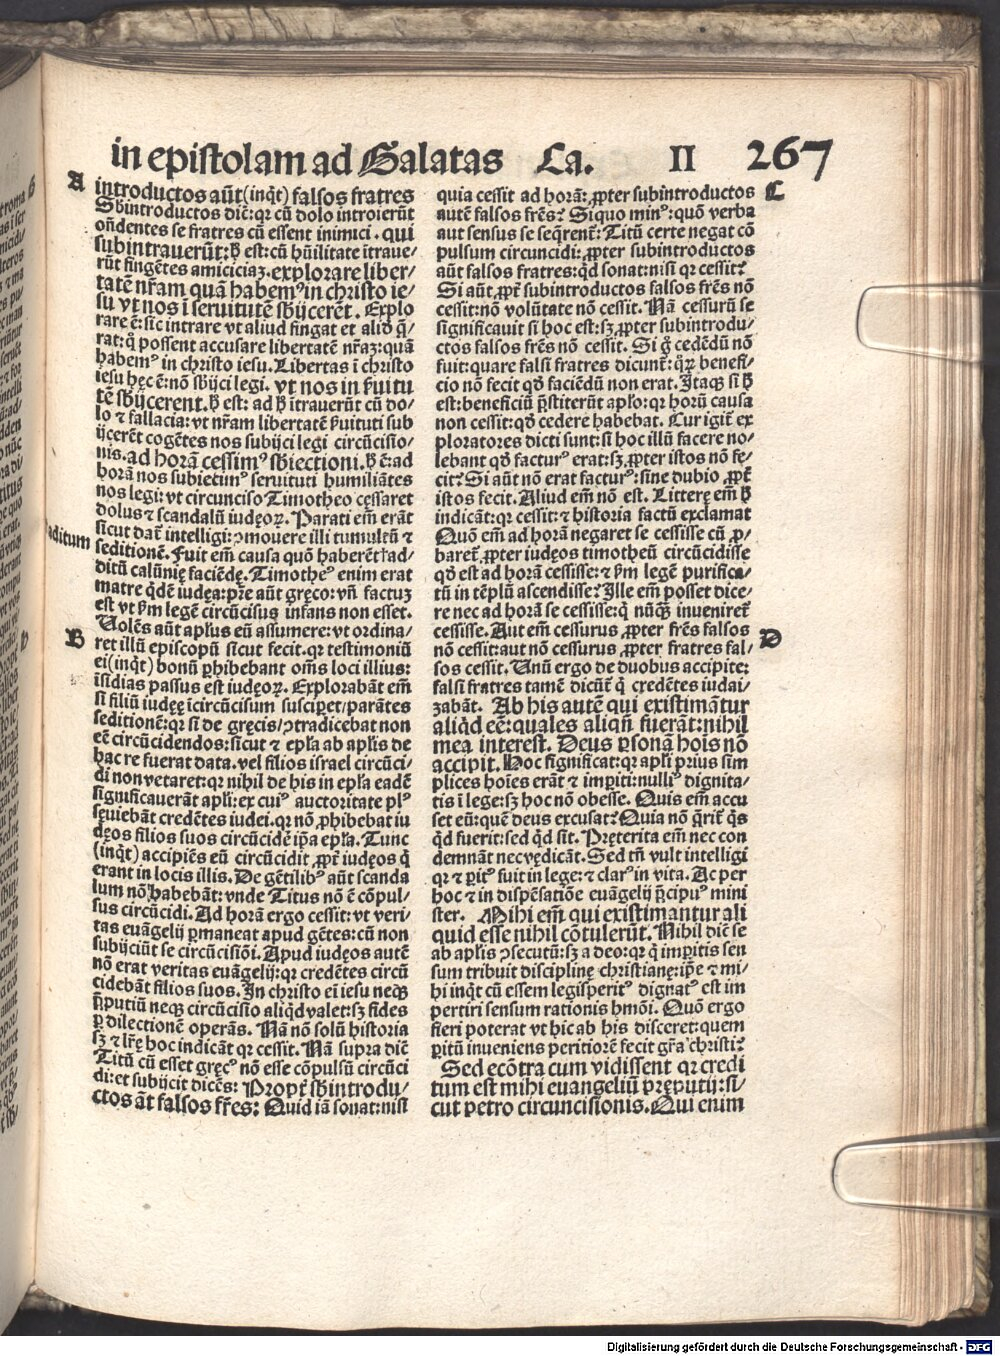 in epistolam ad Galatas Ca. II 267
A
introductos aūt (inq̄t) falsos fratres
Sb̄introductos diē: qr cū dolo introierūt
on̄dentes se fratres cū essent inimici. qui
subintrauerūt: h̄ est: cū hūilitate ītraue/
rūt fingētes amiciciaꝫ. explorare liber/
tatē nr̄am quā habemꝰ in christo ie/
su vt nos ī seruitutē sb̄ijcerēt. Explo
rare ē: sic intrare vt aliud fingat et aliđ q̄/
rat: q̄ possent accusare libertatē nr̄aꝫ: quā
habemꝰ in christo iesu. Libertas ī christo
iesu hęc ē: nō sb̄ijci legi. vt nos in ẜuitu
tē sb̄ijcerent. h̄ est: ad h̄ ītrauerūt cū do/
lo ⁊ fallacia: vt nr̄am libertatē ẜuituti sub
ijcerēt cogētes nos subijci legi circūcisio/
nis. ad horā cessimꝰ sb̄iectioni. h̄ ē: ad
horā nos subiecimꝰ seruituti humiliātes
nos legi: vt circunciso Timotheo cęssaret
dolus ⁊ scandalū iudęoꝝ. Parati em̄ erāt
sicut dat̄ intelligi: ꝯmouere illi tumultū ⁊
seditionē. Fuit em̄ causa quō haberēt ad/
aditum
ditū calūnię faciēdę. Timotheꝰ enim erat
matre q̄dē iudęa: pr̄e aūt gręco: vn̄ factuꝫ
est vt ẜm legē circūcisus infans non esset.
B
Uolēs aūt apl̄us eū assumere: vt ordina/
ret illū episcopū sicut fecit. qr testimoniū
ei (inq̄t) bonū ꝑhibebant om̄s loci illius:
īsidias passus est iudęoꝝ. Explorabāt em̄
si filiū iudęę īcircūcisum susciꝑet/ parātes
seditionē: qr si de gręcis/ ꝯtradicebat non
eē circūcidendos: sicut ⁊ epl̄a ab apl̄is de
hac re fuerat data. vel filios israel circūci/
di non vetaret: qr nihil de his in epl̄a eadē
significauerāt apl̄i: ex cuiꝰ auctoritate plꝰ
sęuiebāt credētes iudei. qr nō ꝓhibebat iu
dęos filios suos circūcidē ip̄a epl̄a. Tunc
(inq̄t) accipiēs eū circūcidit ꝓpt̄ iudęos q̄
erant in locis illis. De gētilibꝰ aūt scanda
lum nō habebāt: vnde Titus nō ē cōpul/
sus circūcidi. Ad horā ergo cessit: vt veri/
tas euāgelij ꝑmaneat apud gētes: cū non
subijciūt se circūcisiōi. Apud iudęos autē
nō erat veritas euāgelij: qr credētes circū
cidebāt filios suos. In christo ei iesu neqꝫ
p̄putiū neqꝫ circūcisio aliq̄d valet: sꝫ fides
ꝑ dilectionē operās. Nā nō solū historia
sꝫ ⁊ lr̄ę hoc indicāt qr cessit. Nā supra diē
Titū cū esset gręcꝰ nō esse cōpulsū circūci
di: et subijcit dicēs: Propt̄ sb̄introdu/
ctos āt falsos fr̄es: Quid iā sonat: nisi
C
quia cessit ad horā: ꝓpter subintroductos
autē falsos frēs? Siquo minꝰ: quō verba
aut sensus se seq̄rent̄: Titū certe negat cō
pulsum circuncidi: ꝓpter subintroductos
aūt falsos fratres: q̄d sonat: nisi qr cessit?
Si aūt ꝓpt̄ subintroductos falsos frēs nō
cessit: nō volūtate nō cessit. Nā cessurū se
significauit si hoc est: sꝫ ꝓpter subintrodu/
ctos falsos frēs nō cessit. Si g̊ cedēdū nō
fuit: quare falsi fratres dicunt̄: q̄ꝛ benefi/
cio nō fecit qđ faciēdū non erat. Itaqꝫ si h̄
est: beneficiū p̄stiterūt apl̄o: qr horū causa
non cessit: qđ cedere habebat. Cur igit̄ ex
ploratores dicti sunt: si hoc illū facere no/
lebant qđ facturꝰ erat: sꝫ ꝓpter istos nō fę/
cit? Si aūt nō erat facturꝰ: sine dubio ꝓpt̄
istos fecit. Aliud em̄ nō est. Litterę em̄ h̄
indicāt: qr cessit: ⁊ historia factū exclamat
Quō em̄ ad horā negaret se cessisse cū ꝓ/
baret̄ ꝓpter iudęos timotheū circūcidisse
qđ est ad horā cessisse: ⁊ ẜm legē purifica/
tū in tēplū ascendisse? Ille em̄ posset dice/
re nec ad horā se cessisse: q̄ nūqꝫ inueniret̄
cessisse. Aut em̄ cessurus ꝓpter frēs falsos
D
nō cessit: aut nō cessurus ꝓpter fratres fal/
sos cessit. Unū ergo de duobus accipite:
falsi fratres tamē dicūt̄ q̄ credētes iudai/
zabāt. Ab his autē qui existimātur
aliq̄d eē: quales aliqn̄ fuerāt: nihil
mea interest. Deus ꝑsonā hoīs nō
accipit. Hoc significat: qr apl̄i prius sim
plices hoīes erāt ⁊ imꝑiti: nulliꝰ dignita/
tis ī lege: sꝫ hoc nō obesse. Quis em̄ accu
set eū: quē deus excusat? Quia nō q̄rit̄ q̄s
q̄d fuerit: sed q̄d sit. Pręterita em̄ nec con
demnāt nec vędicāt. Sed tn̄ vult intelligi
qr ⁊ ꝑitꝰ fuit in lege: ⁊ clarꝰ in vita. Ac per
hoc ⁊ in dispēsatiōe euāgelij p̄cipuꝰ mini
ster. Mihi em̄ qui existimantur ali
quid esse nihil cōtulerūt. Nihil diē se
ab apl̄is ꝯsecutū: sꝫ a deo: qr q̄ imꝑitis sen
sum tribuit disciplinę christianę: ip̄e ⁊ mi/
hi inq̄t cū essem legisꝑitꝰ dignatꝰ est im
pertiri sensum rationis hm̄oi. Quō ergo
fieri poterat vt hic ab his disceret: quem
ꝑitū inueniens peritiorē fecit gr̄a christi?
Sed ecōtra cum vidissent qr credi
tum est mihi euangeliū pręputij: si/
cut petro circuncisionis. Qui enim
Digitalisierung gefördert durch die Deutsche Forschungsgemeinschaft - DFG